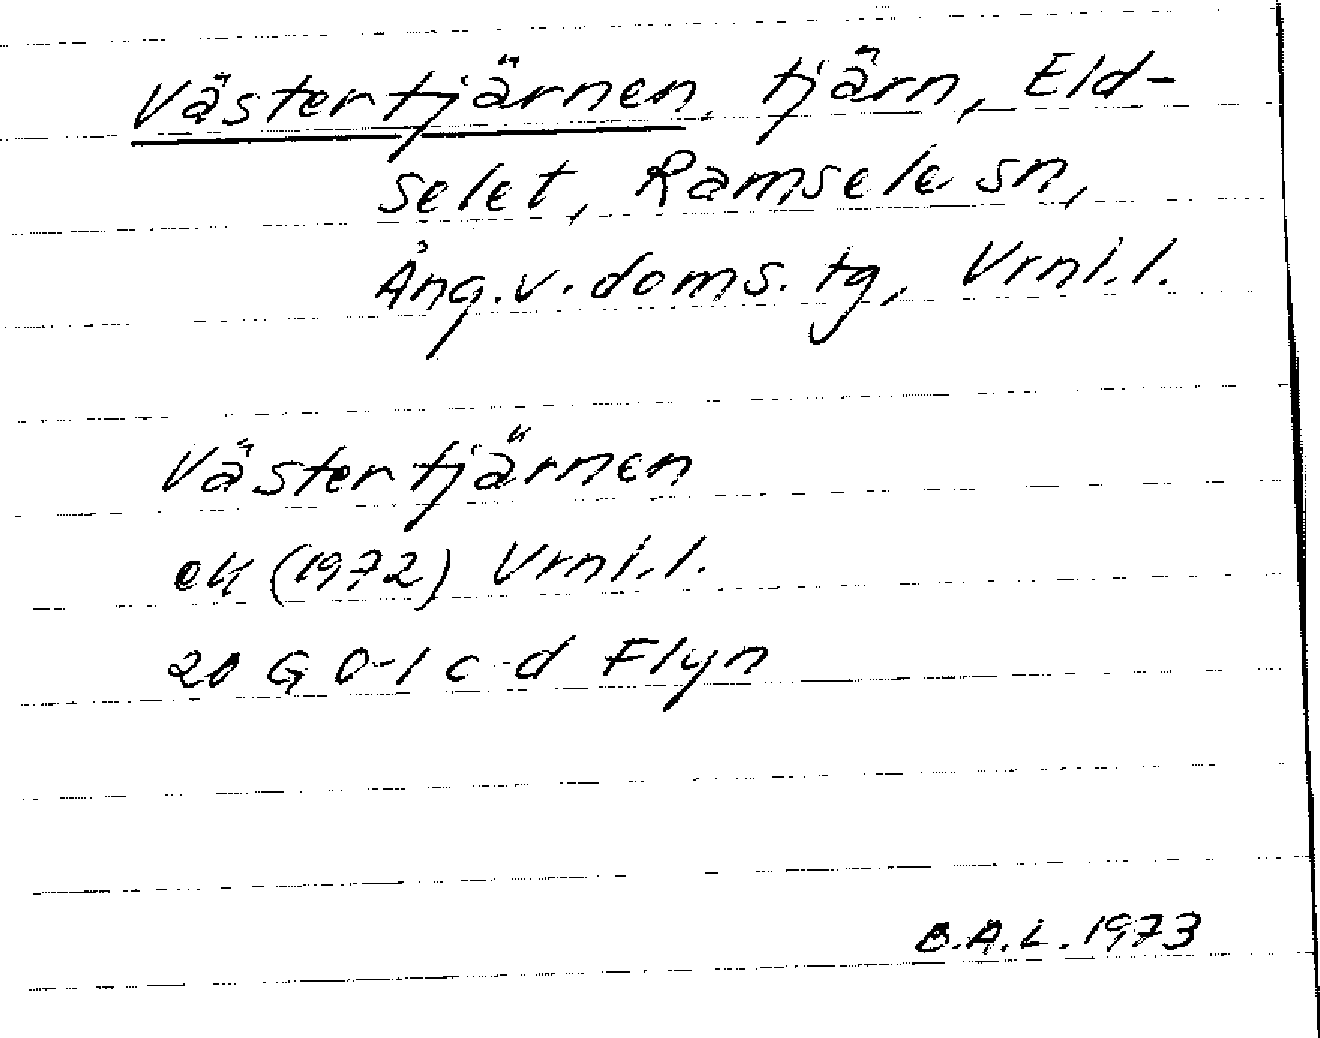 Västertjärnen, tjärn, Eld-
selet, Ramsele sn,
Ång. v. doms. tg, Vrnl. l.
Västertjärnen
ek (1972) Vrnl. l.
20 G 0-1 c-d Flyn
B.A.L. 1973